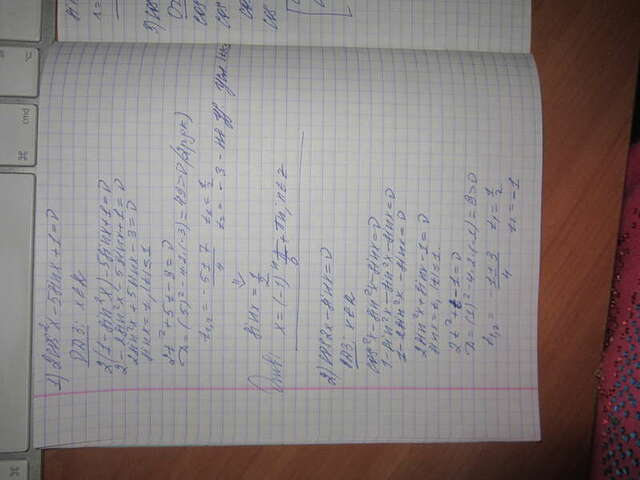 1) 2cos²x - 5sinx + 1 = 0
ОДЗ: x∈R
2(1 - sin²x) - 5sinx + 1 = 0
2 - 2sin²x - 5sinx + 1 = 0
2sin²x + 5sinx - 3 = 0
sinx = t, |t| ≤ 1
2t² + 5t - 3 = 0
D = (5)² - 4·2·(-3) = 49 > 0
t₁,₂ = (-5 ± 7)/4 t₁ = 1/2
t₂ = -3 - не уд
sinx = 1/2
x = (-1)ⁿ π/6 + πn, n∈Z
2) cos2x - sinx = 0
ОДЗ x∈R
cos²x - sin²x - sinx = 0
1 - sin²x - sin²x - sinx = 0
1 - 2sin²x - sinx = 0
2sin²x + sinx - 1 = 0
sinx = t, |t| ≤ 1
2t² + t - 1 = 0
D = (1)² - 4·2·(-1) = 9 > 0
t₁,₂ = (-1 ± 3)/4 t₁ = 1/2
t₂ = -1
cmd
⌘